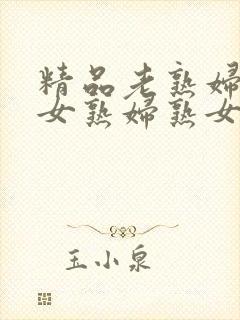 精品老熟婦
女熟婦熟女
玉小泉